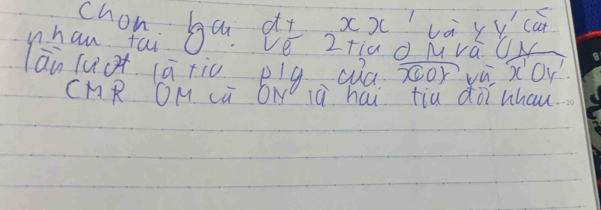 Chon hai đt xx' và yy' cắt
nhau tai O. Vẽ 2 tia OM và ON
lần lượt là tia p/g của xOy và x'Oy'.
CMR OM và ON là hai tia đối nhau